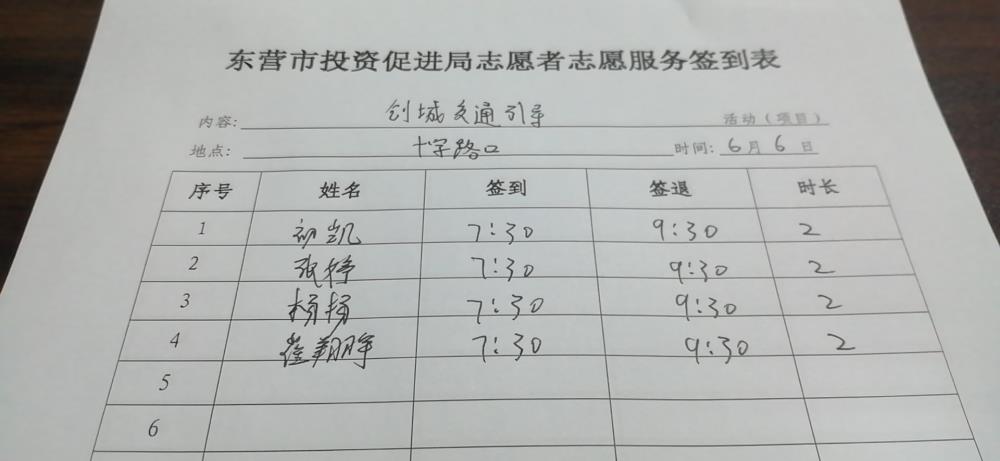 东营市投资促进局志愿者志愿服务签到表
内容: 创城交通引导 活动（项目）
地点: 十字路口 时间: 6月6日
序号 姓名 签到 签退 时长
1 初凯 7:30 9:30 2
2 张婷 7:30 9:30 2
3 杨扬 7:30 9:30 2
4 7:30 9:30 2
5
6